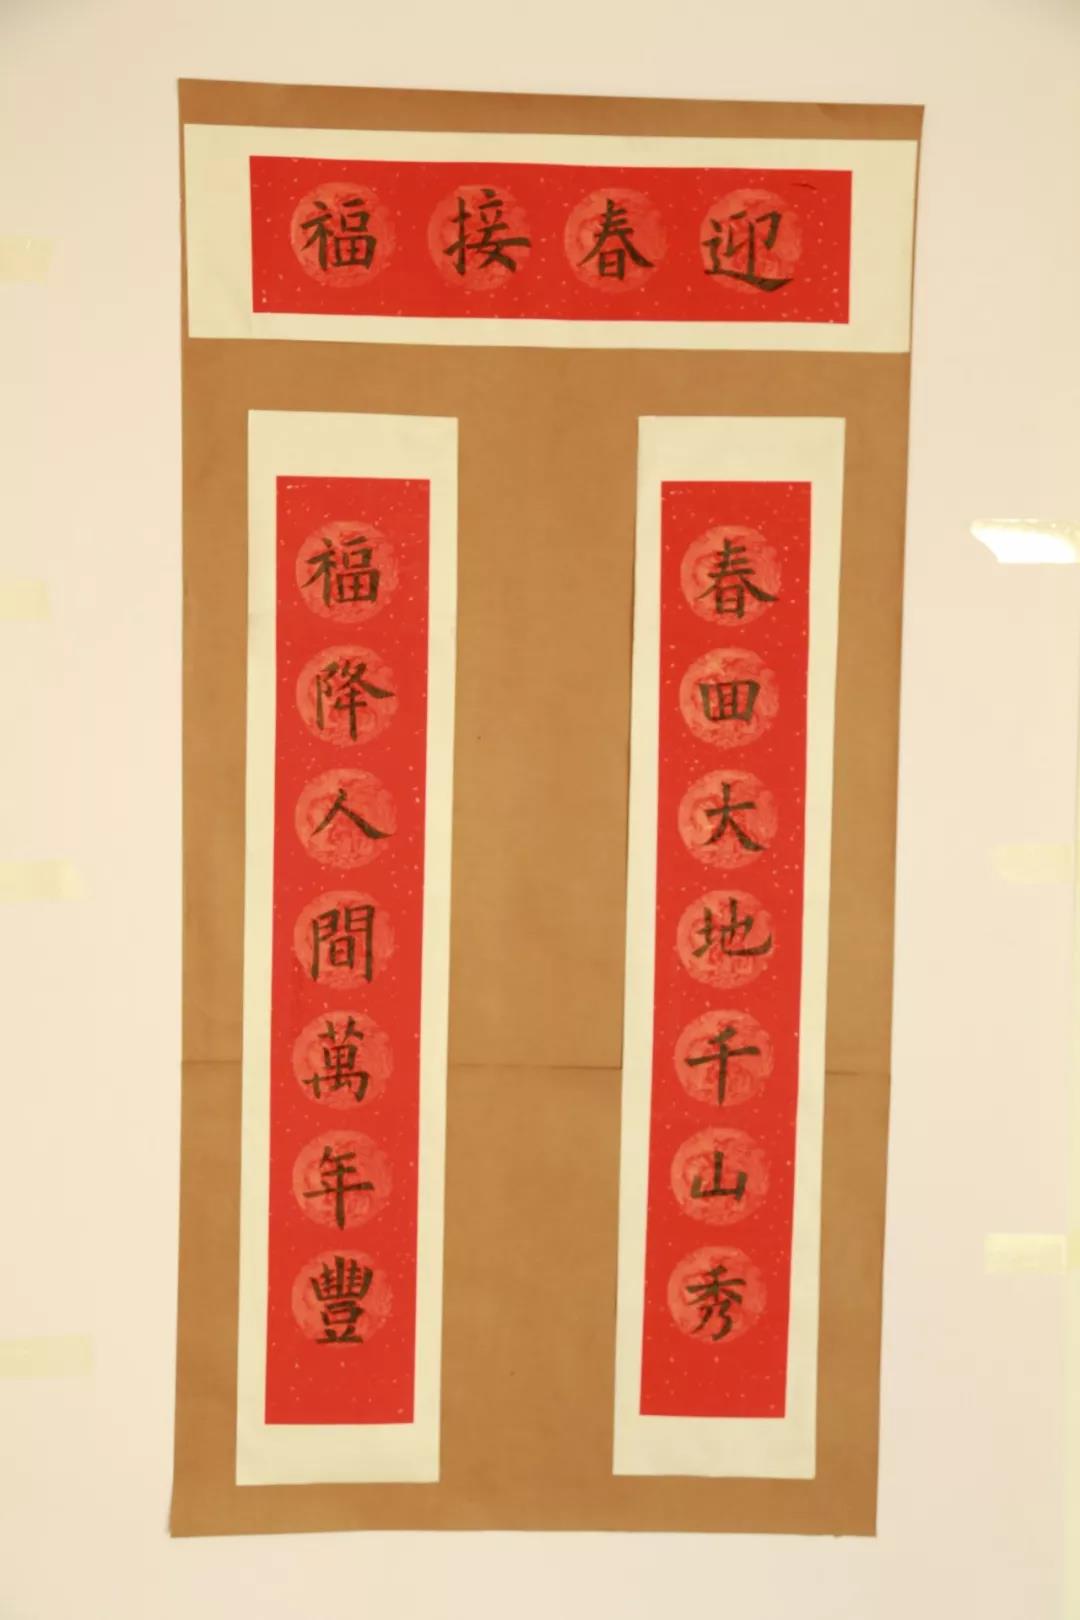 迎春接福
春回大地千山秀
福降人間萬年豐